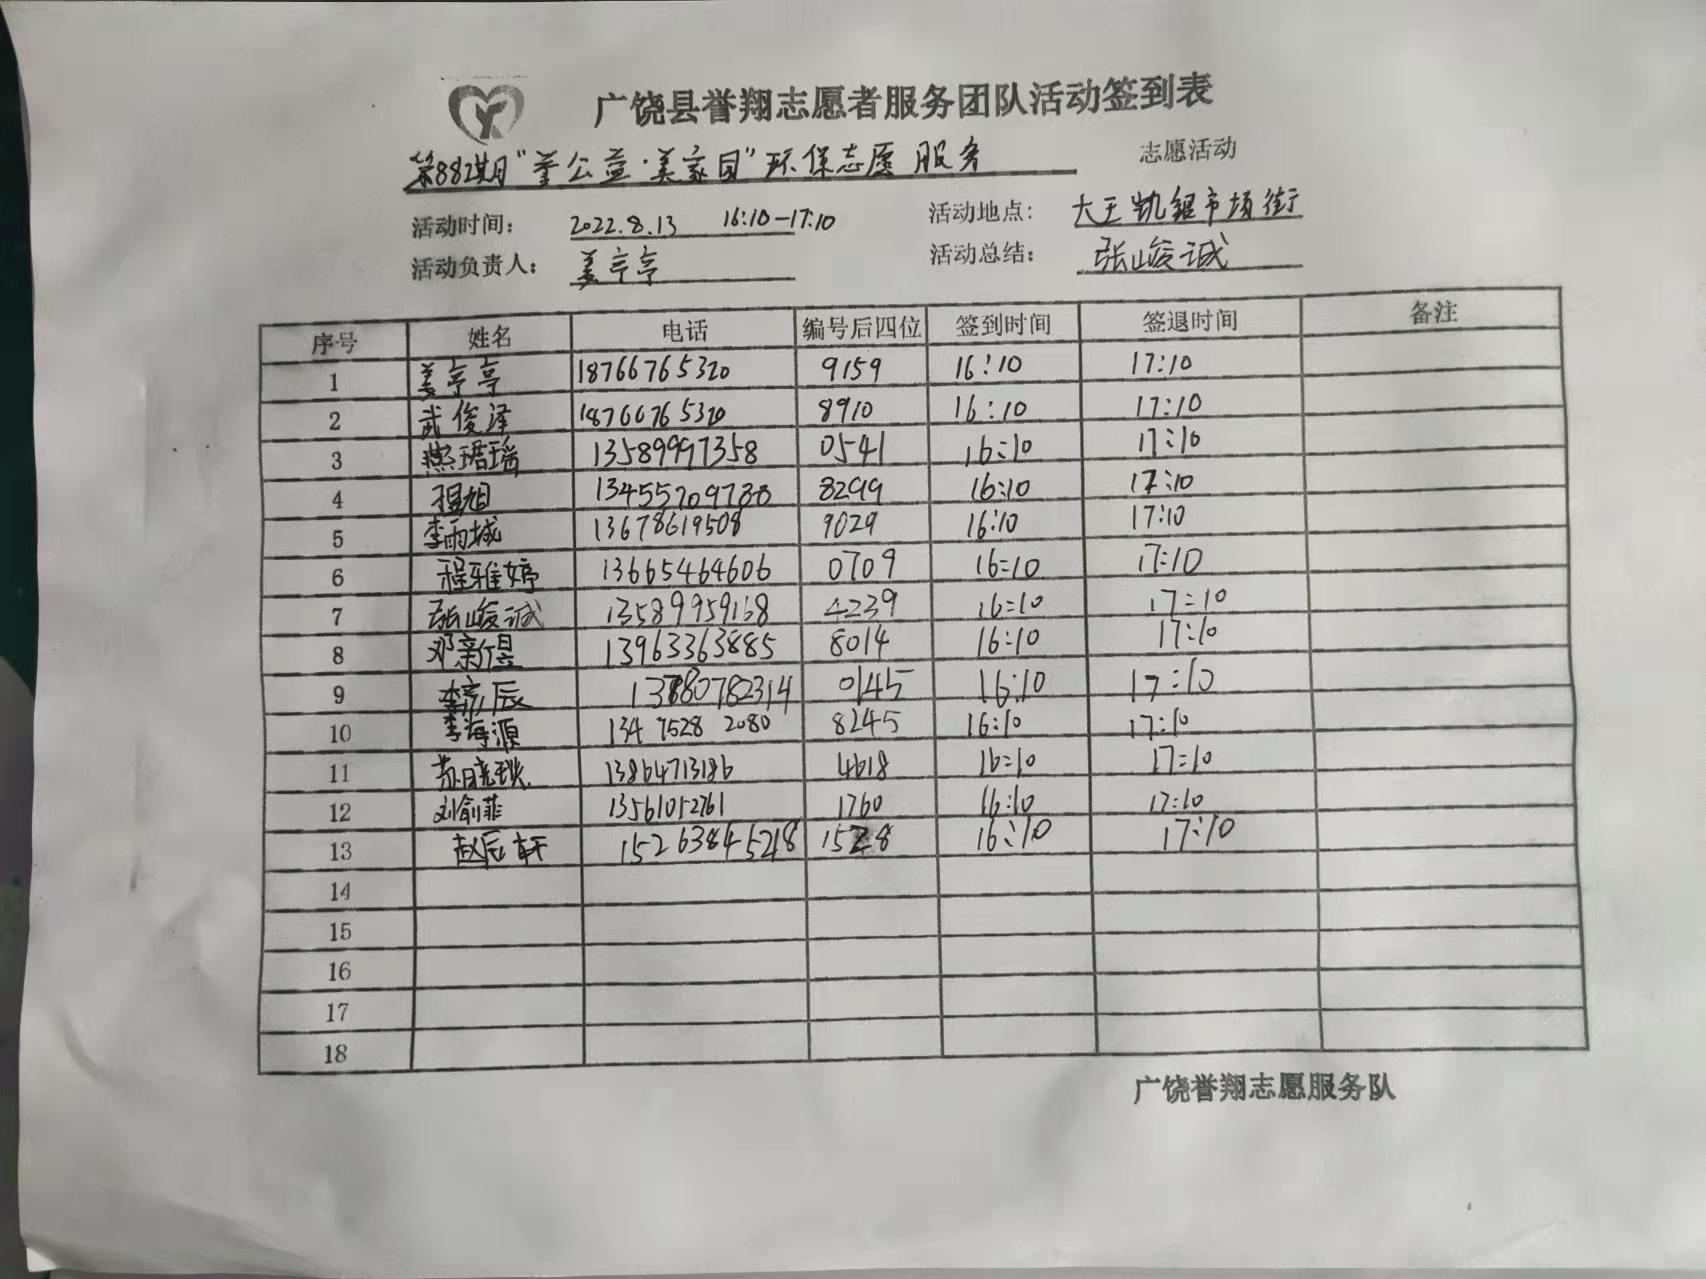 广饶县誉翔志愿者服务团队活动签到表
第882期"善公益·美家园"环保志愿服务 志愿活动
活动时间: 2022.8.13 16:10-17:10 活动地点: 大王凯银市场街
活动负责人: 姜亭亭 活动总结: 张峻诚
序号 姓名 电话 编号后四位 签到时间 签退时间 备注
1 姜亭亭 18766765320 9159 16:10 17:10
2 武俊泽 18766765320 8910 16:10 17:10
3 燕珺瑶 13589997358 0541 16:10 17:10
4 程旭 13455709788 8299 16:10 17:10
5 李雨城 13678619508 9029 16:10 17:10
6 程雅婷 13665464606 0709 16:10 17:10
7 张峻诚 13589959168 4239 16:10 17:10
8 邓新昱 13963363885 8014 16:10 17:10
9 李彦辰 0145 16:10 17:10
10 李海源 134 7528 2080 8245 16:10 17:10
11 苏 13864713186 4618 16:10 17:10
12 刘俞菲 13561052761 1760 16:10 17:10
13 赵辰轩 15263845218 1528 16:10 17:10
14
15
16
17
18
广饶誉翔志愿服务队